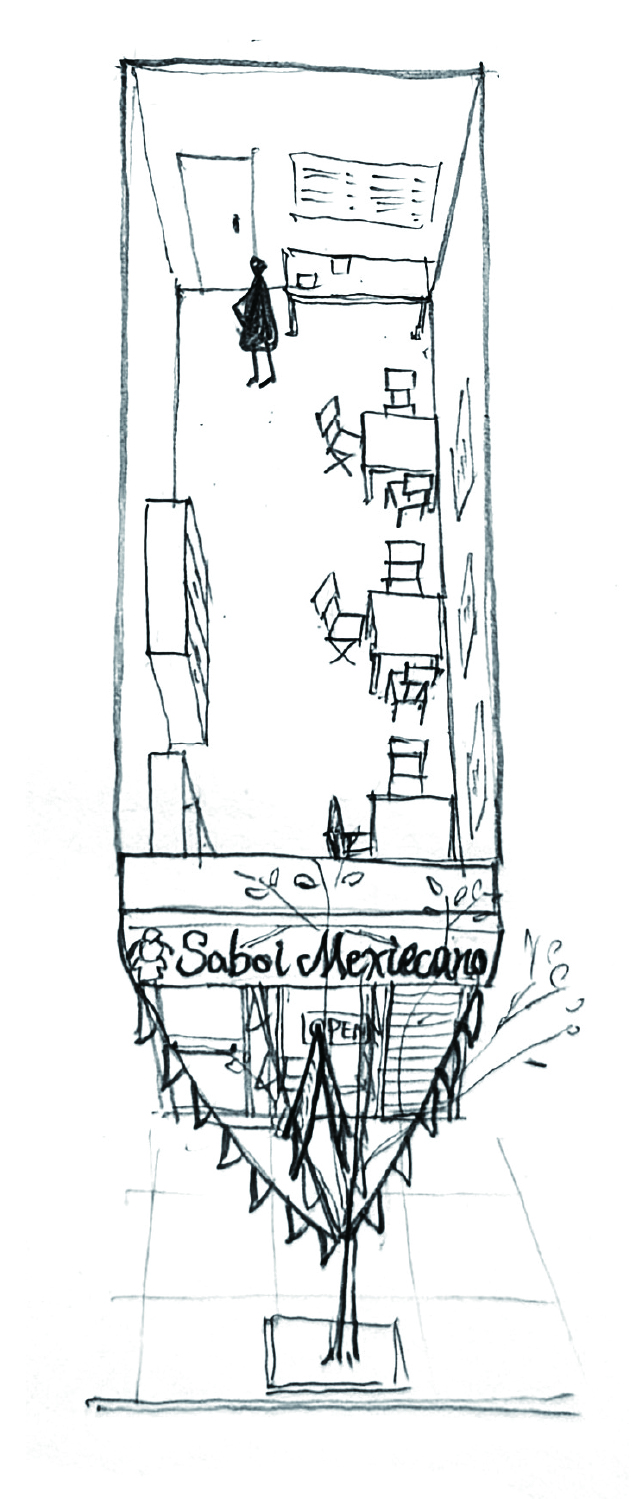 Saboi Mexiecano
OPEN